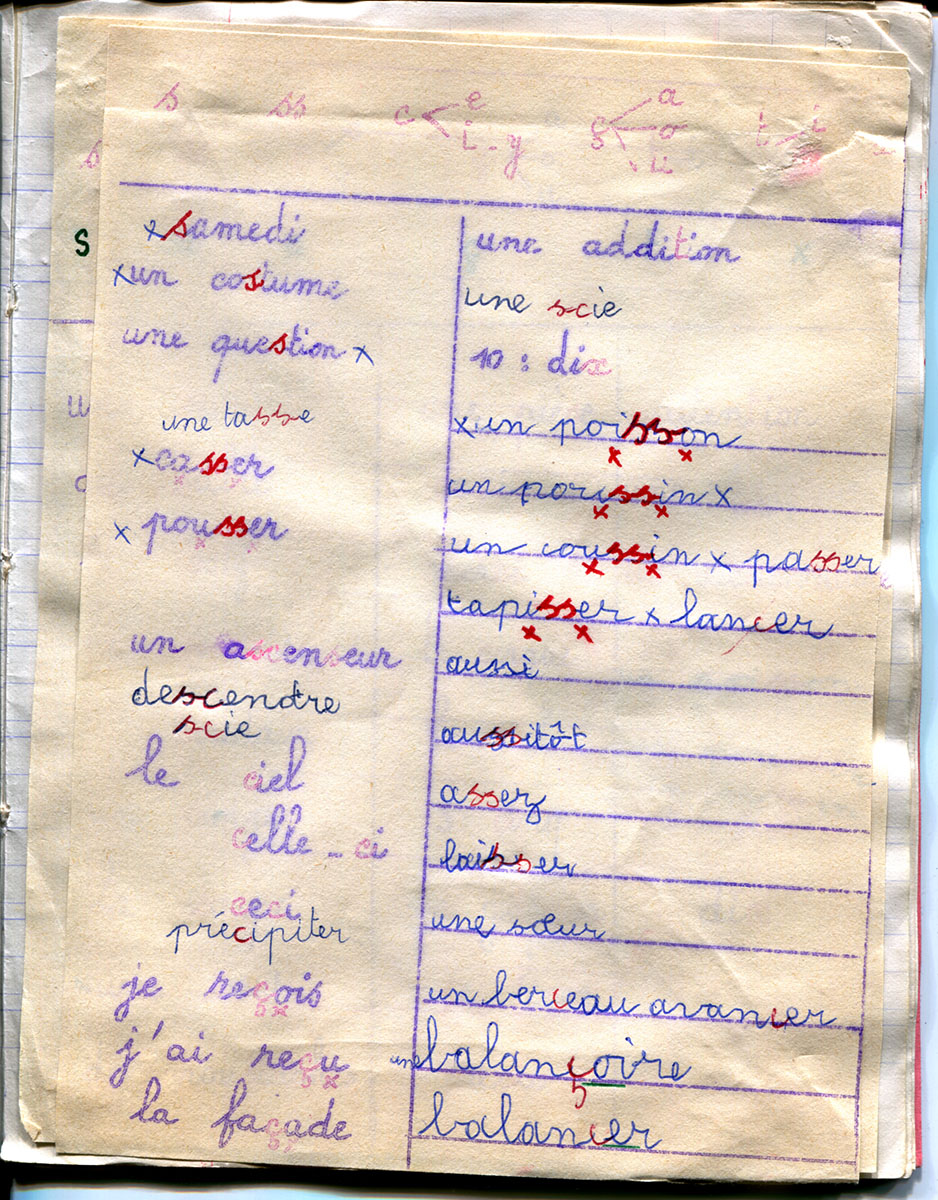 s ss c e i - y ç a o u t i
s
S
samedi
un costume
une question
une tasse
casser
pousser
un ascenseur
descendre
scie
le ciel
celle-ci
ceci
précipiter
je reçois
j'ai reçu
la façade
une addition
une scie
10 : dix
un poisson
un poussin
un coussin x passer
tapisser x lancer
aussi
aussitôt
assez
laisser
une sœur
un berceau avancer
une balançoire
balancer